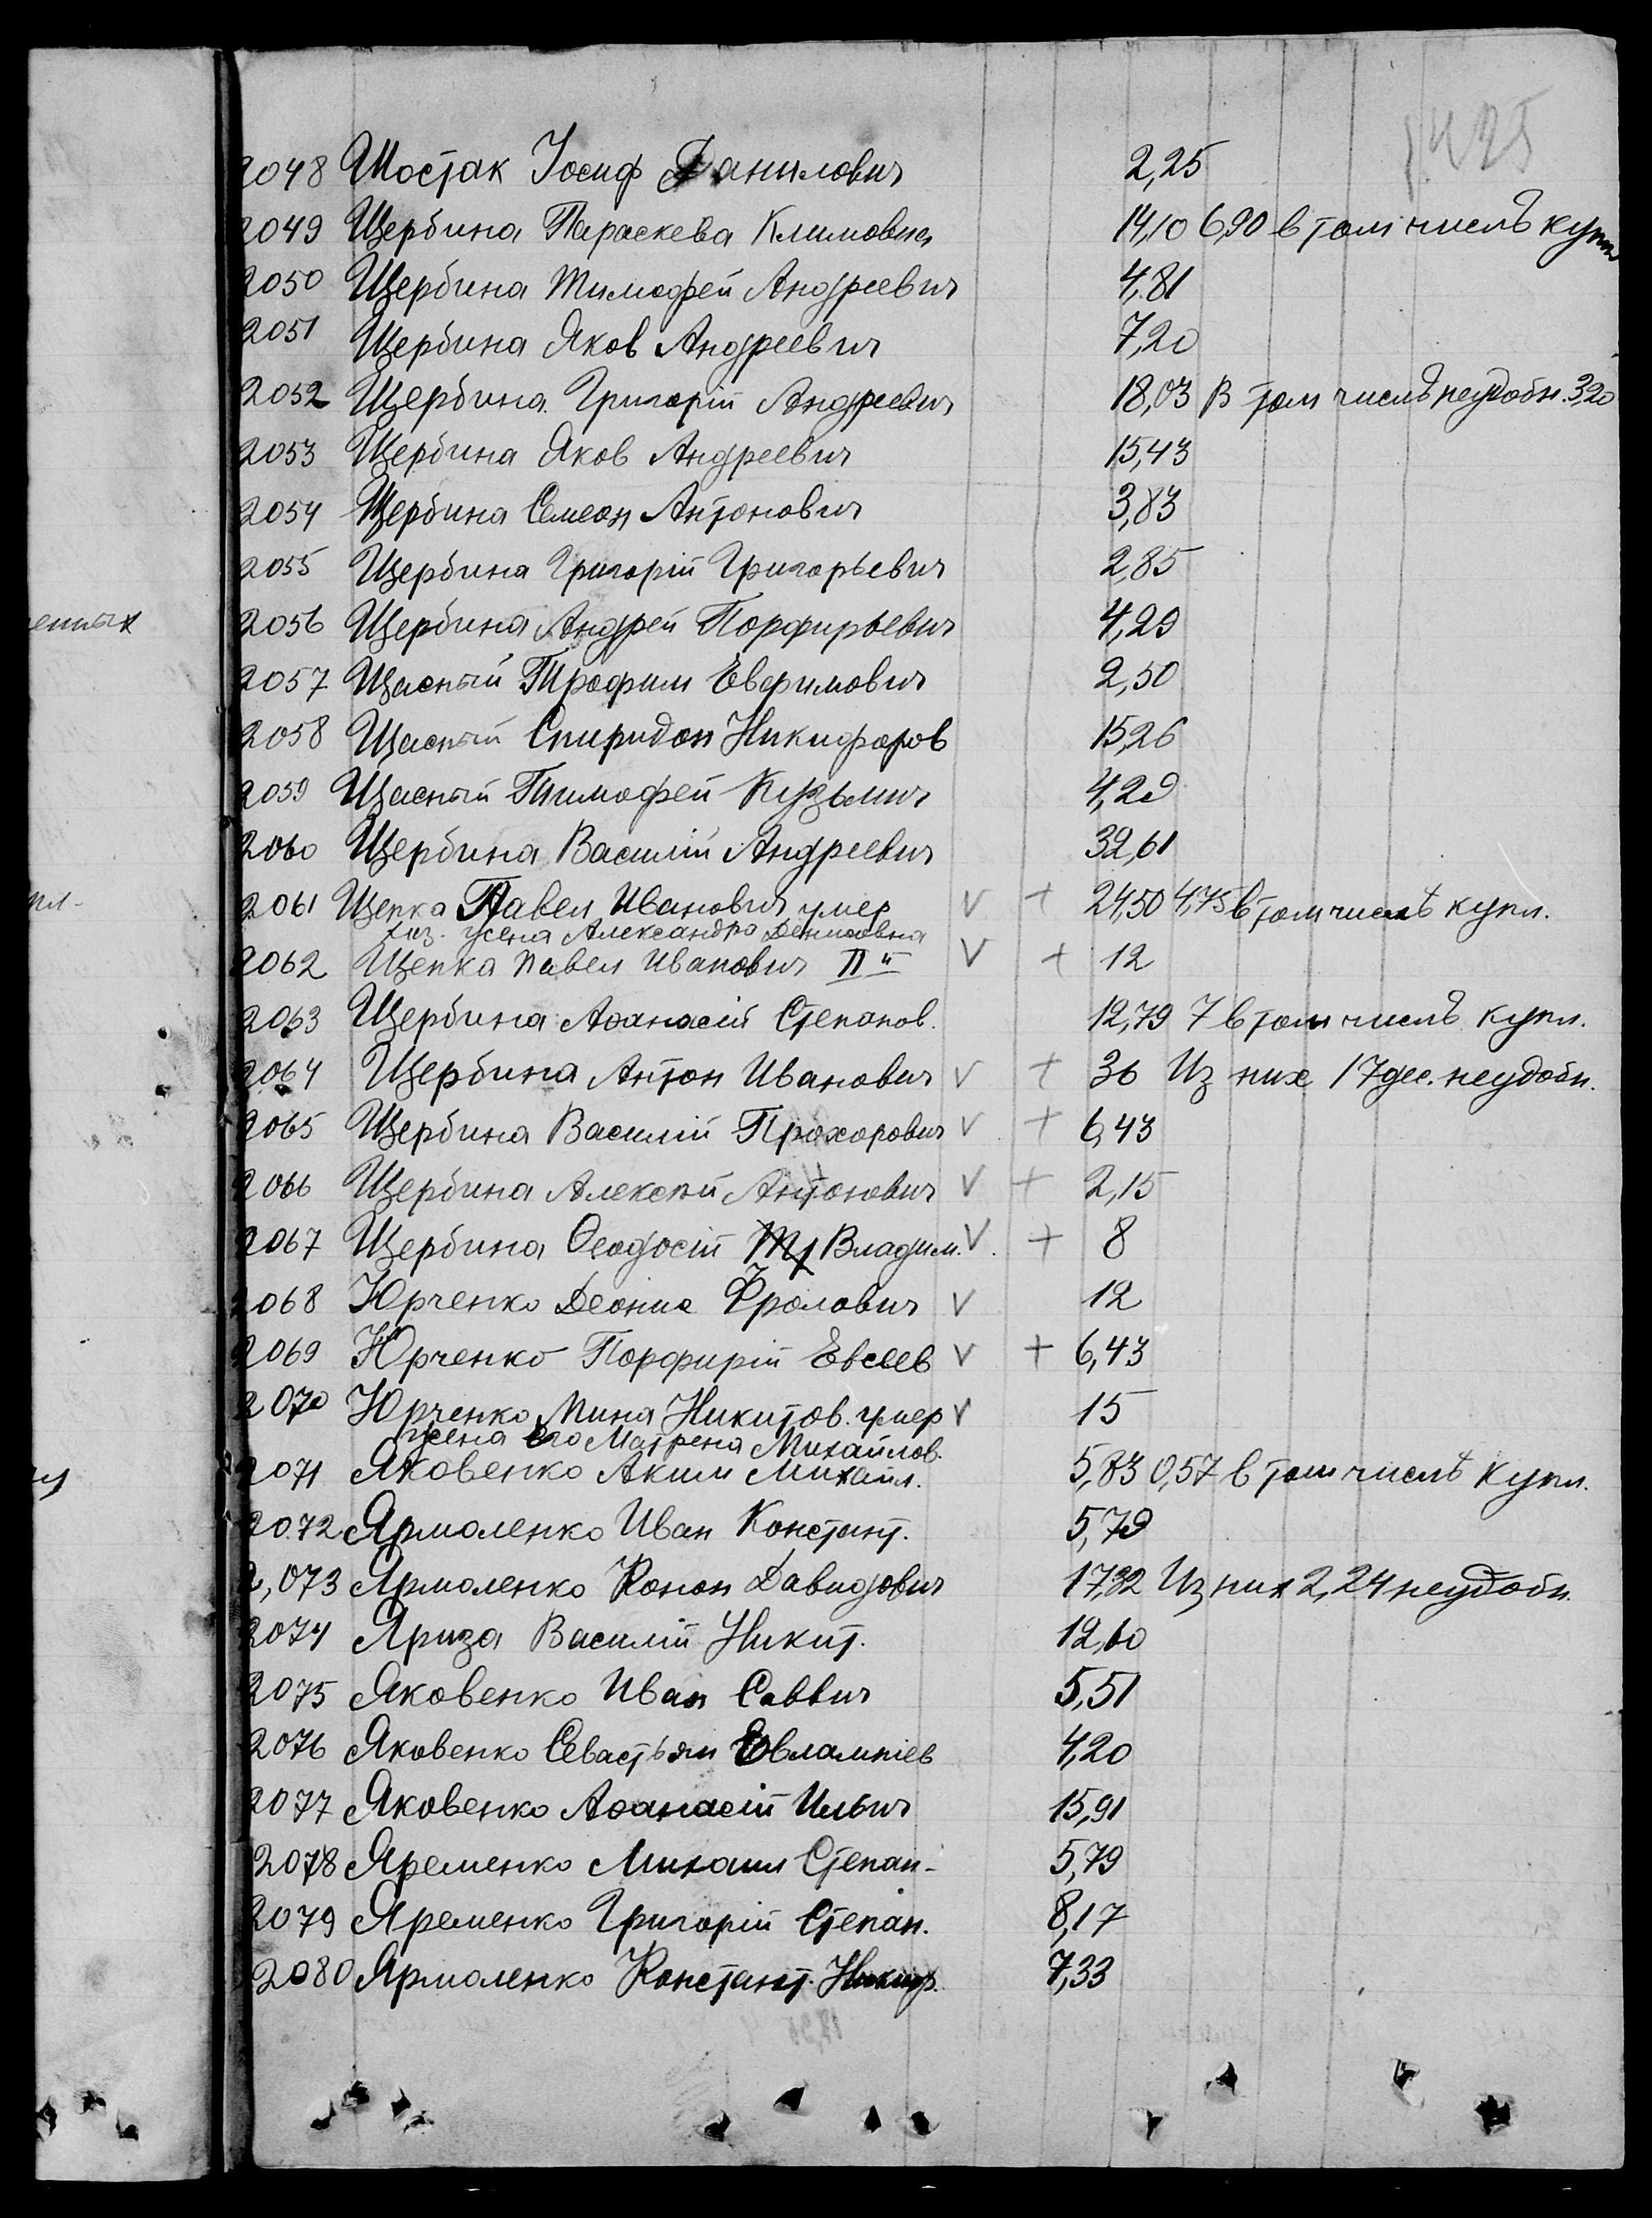 2048 Шостак Іосиф Данилович 2,25
2049 Щербина Параскева Климовна 14,10 6,90 в том числѣ купл
2050 Щербина Тимофей Андреевич 4,81
2051 Щербина Яков Андреевич 7,20
2052 Щербина Григорій Андреевич 18,03 В том числѣ неудобн. 3,20
2053 Щербина Яков Андреевич 15,43
2054 Щербина Семеон Антонович 3,83
2055 Щербина Григорій Григорьевич 2,85
енных
2056 Щербина Андрей Порфирьевич 4,29
2057 Щасный Трофим Евфимович 2,50
2058 Щасный Спиридон Никифоров 15,26
2059 Щасный Тимофей Кузьмич 4,29
2060 Щербина Василій Андреевич 32,61
2061 Щепка Павел Иванович умер V + 24,50 4,75 в том числѣ купл.
хоз. жена Александра Денисовна
2062 Щепка Павел Иванович II й V + 12
2063 Щербина Аѳанасій Степанов. 12,79 7 в том числѣ купл.
2064 Щербина Антон Иванович V + 36 Из них 17 дес. неудобн.
2065 Щербина Василій Прохорович V + 6,43
2066 Щербина Алексѣй Антонович V + 2,15
2067 Щербина Ѳеодосій Владим. V + 8
2068 Юрченко Деонис Фролович V 12
2069 Юрченко Порфирій Евсеев V + 6,43
2070 Юрченко Мина Никитов. умер V 15
жена его Матрена Михайлов.
2071 Яковенко Аким Михайл. 5,83 0,57 в том числѣ купл.
2072 Ярмоленко Иван Констант. 5,79
2,073 Ярмоленко Конон Давидович 17,32 Из них 2,24 неудобн.
2074 Яриза Василій Никит. 12,60
2075 Яковенко Иван Саввич 5,51
2076 Яковенко Севастьян Евлампіев 4,20
2077 Яковенко Аѳанасій Ильич 15,91
2078 Яременко Михаил Степан- 5,79
2079 Яременко Григорій Степан. 8,17
2080 Ярмоленко Констант. Никиф. 7,33